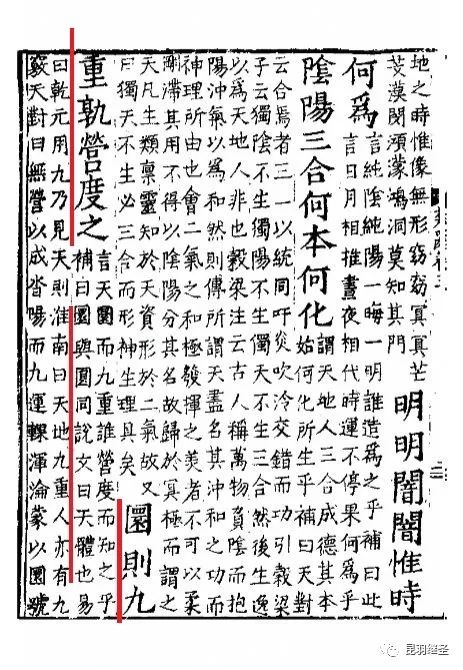 地之時惟像無形窈窈冥冥芒
芠漠閔澒濛鴻洞莫知其門
明明闇闇惟時
何爲
言純陰純陽一晦一明誰造爲之乎補曰此
言日月相推晝夜相代時運不停果何爲乎
陰陽三合何本何化
謂天地人三合成德其本
始何化所生乎補曰天對
云合焉者三一以統同吁炎吹冷交錯而功引穀梁
子云獨陰不生獨陽不生獨天不生三合然後生逸
以爲天地人非也穀梁注云古人稱萬物負陰而抱
陽冲氣以爲和然則傳所謂天蓋名其冲和之功而
神理所由也會二氣之和極發揮之美者不可以柔
剛滯其用不得以陰陽分其名故歸於冥極而謂之
天凡生類稟靈知於天資形於二氣故又
曰獨天不生必三合而形神生理具矣
圜則九
重孰營度之
言天圜而九重誰營度而知之乎
補曰圜與圓同說文曰天體也易
曰乾元用九乃見天則淮南曰天地九重人亦有九
竅天對曰無營以成沓陽而九運輠渾淪蒙以圜號
昆羽继圣